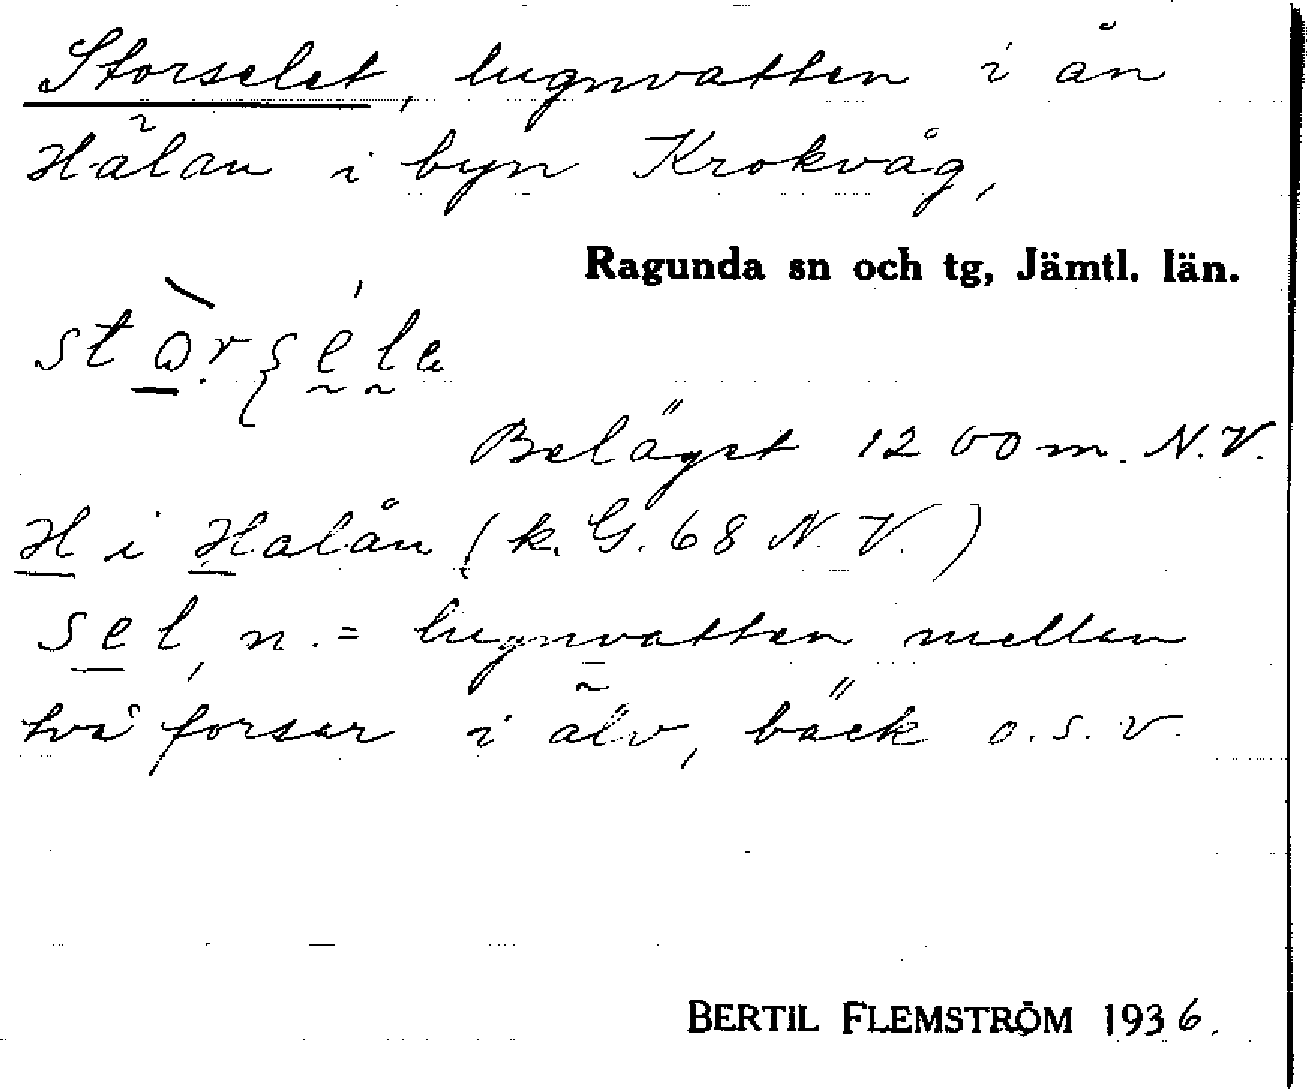 Storselet, lugnvatten i ån
Hälan i byn Krokvåg,
Ragunda sn och tg, Jämtl. län.
Beläget 1200 m. N.V.
H i Halån (k. G. 68 N.V.)
sel, n. = lugnvatten mellan
två forsar i älv, bäck o.s.v.
BERTIL FLEMSTRÖM 1936.